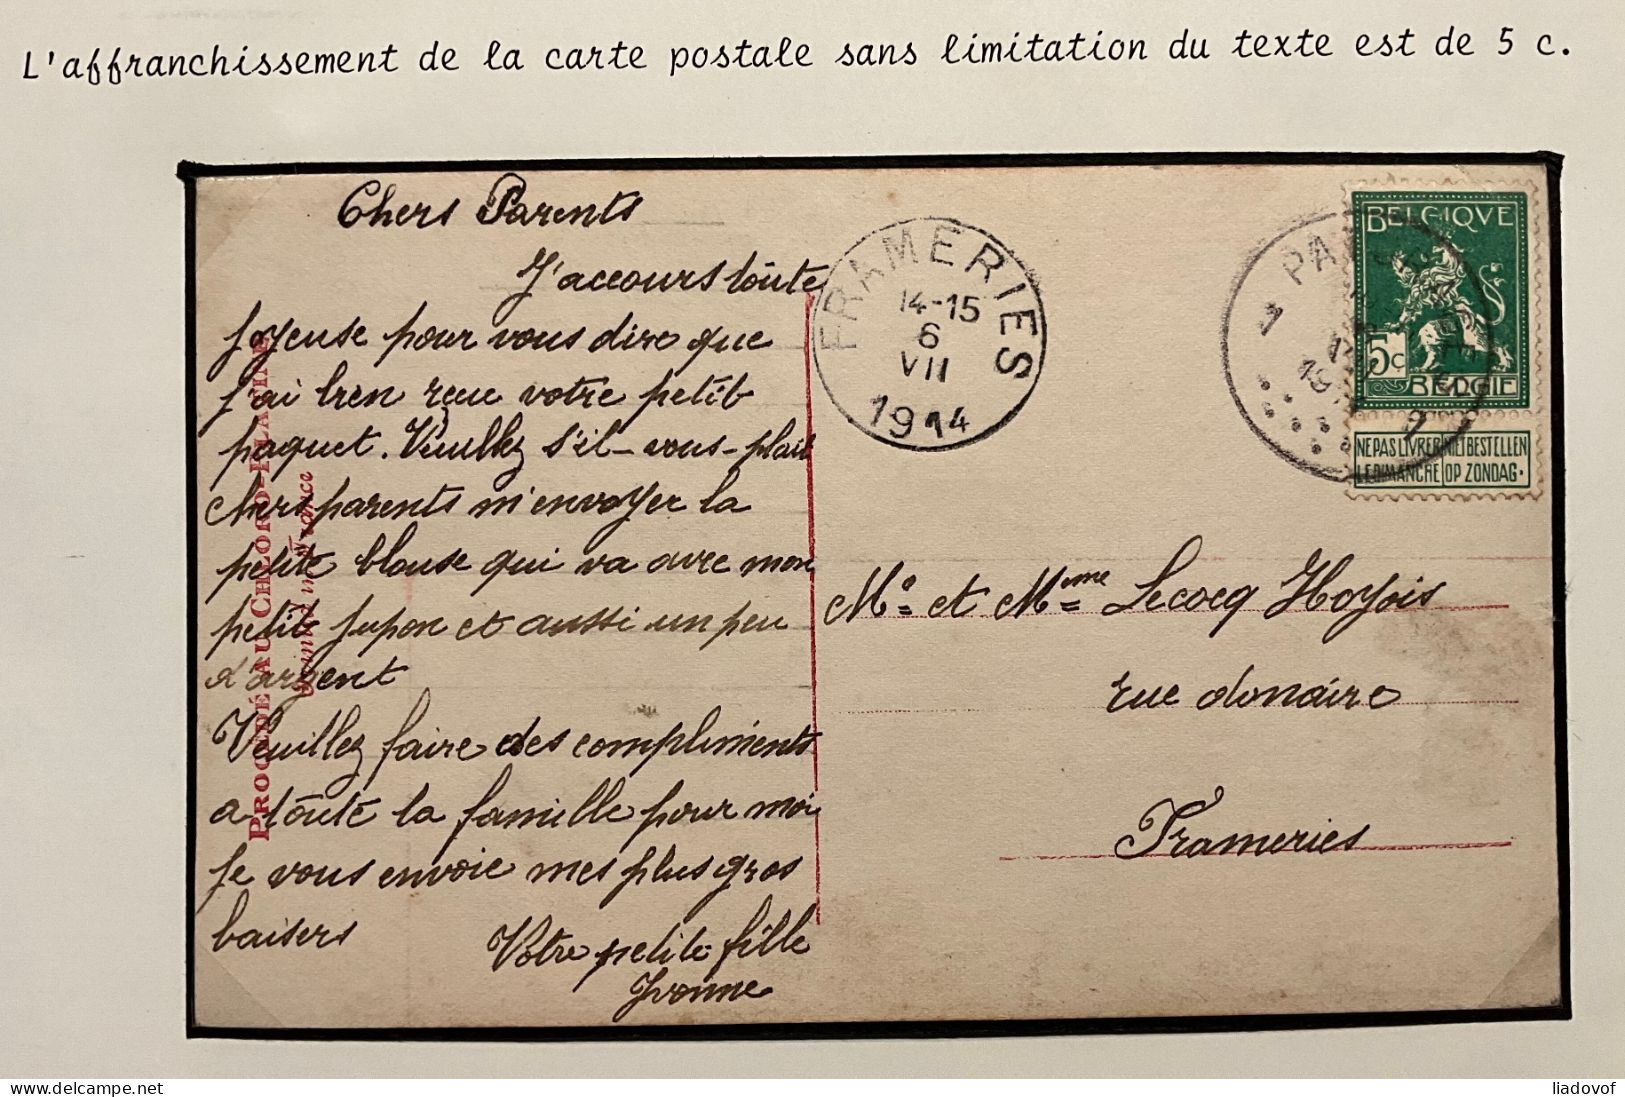 L'affranchissement de la carte postale sans limitation du texte est de 5 c.
Chers Parents
J'accours toute
joyeuse pour vous dire que
j'ai bien reçu votre petit
paquet. Veuillez s'il-vous-plait
chers parents m'envoyer la
petite blouse qui va avec mon
petit jupon et aussi un peu
d'argent
Veuillez faire des compliments
a toute la famille pour moi
je vous envoie mes plus gros
baisers
Votre petite fille
Yvonne
PROCÉDÉ AU CHLORO-PLATINE
FRAMERIES
14-15
6
VII
1914
BELGIQVE
5c
BELGIE
NE PAS LIVRER LE DIMANCHE
NIET BESTELLEN OP ZONDAG.
Mr. et Mme Lecocq Hoyois
rue
Frameries
delcampe.net
liadovof